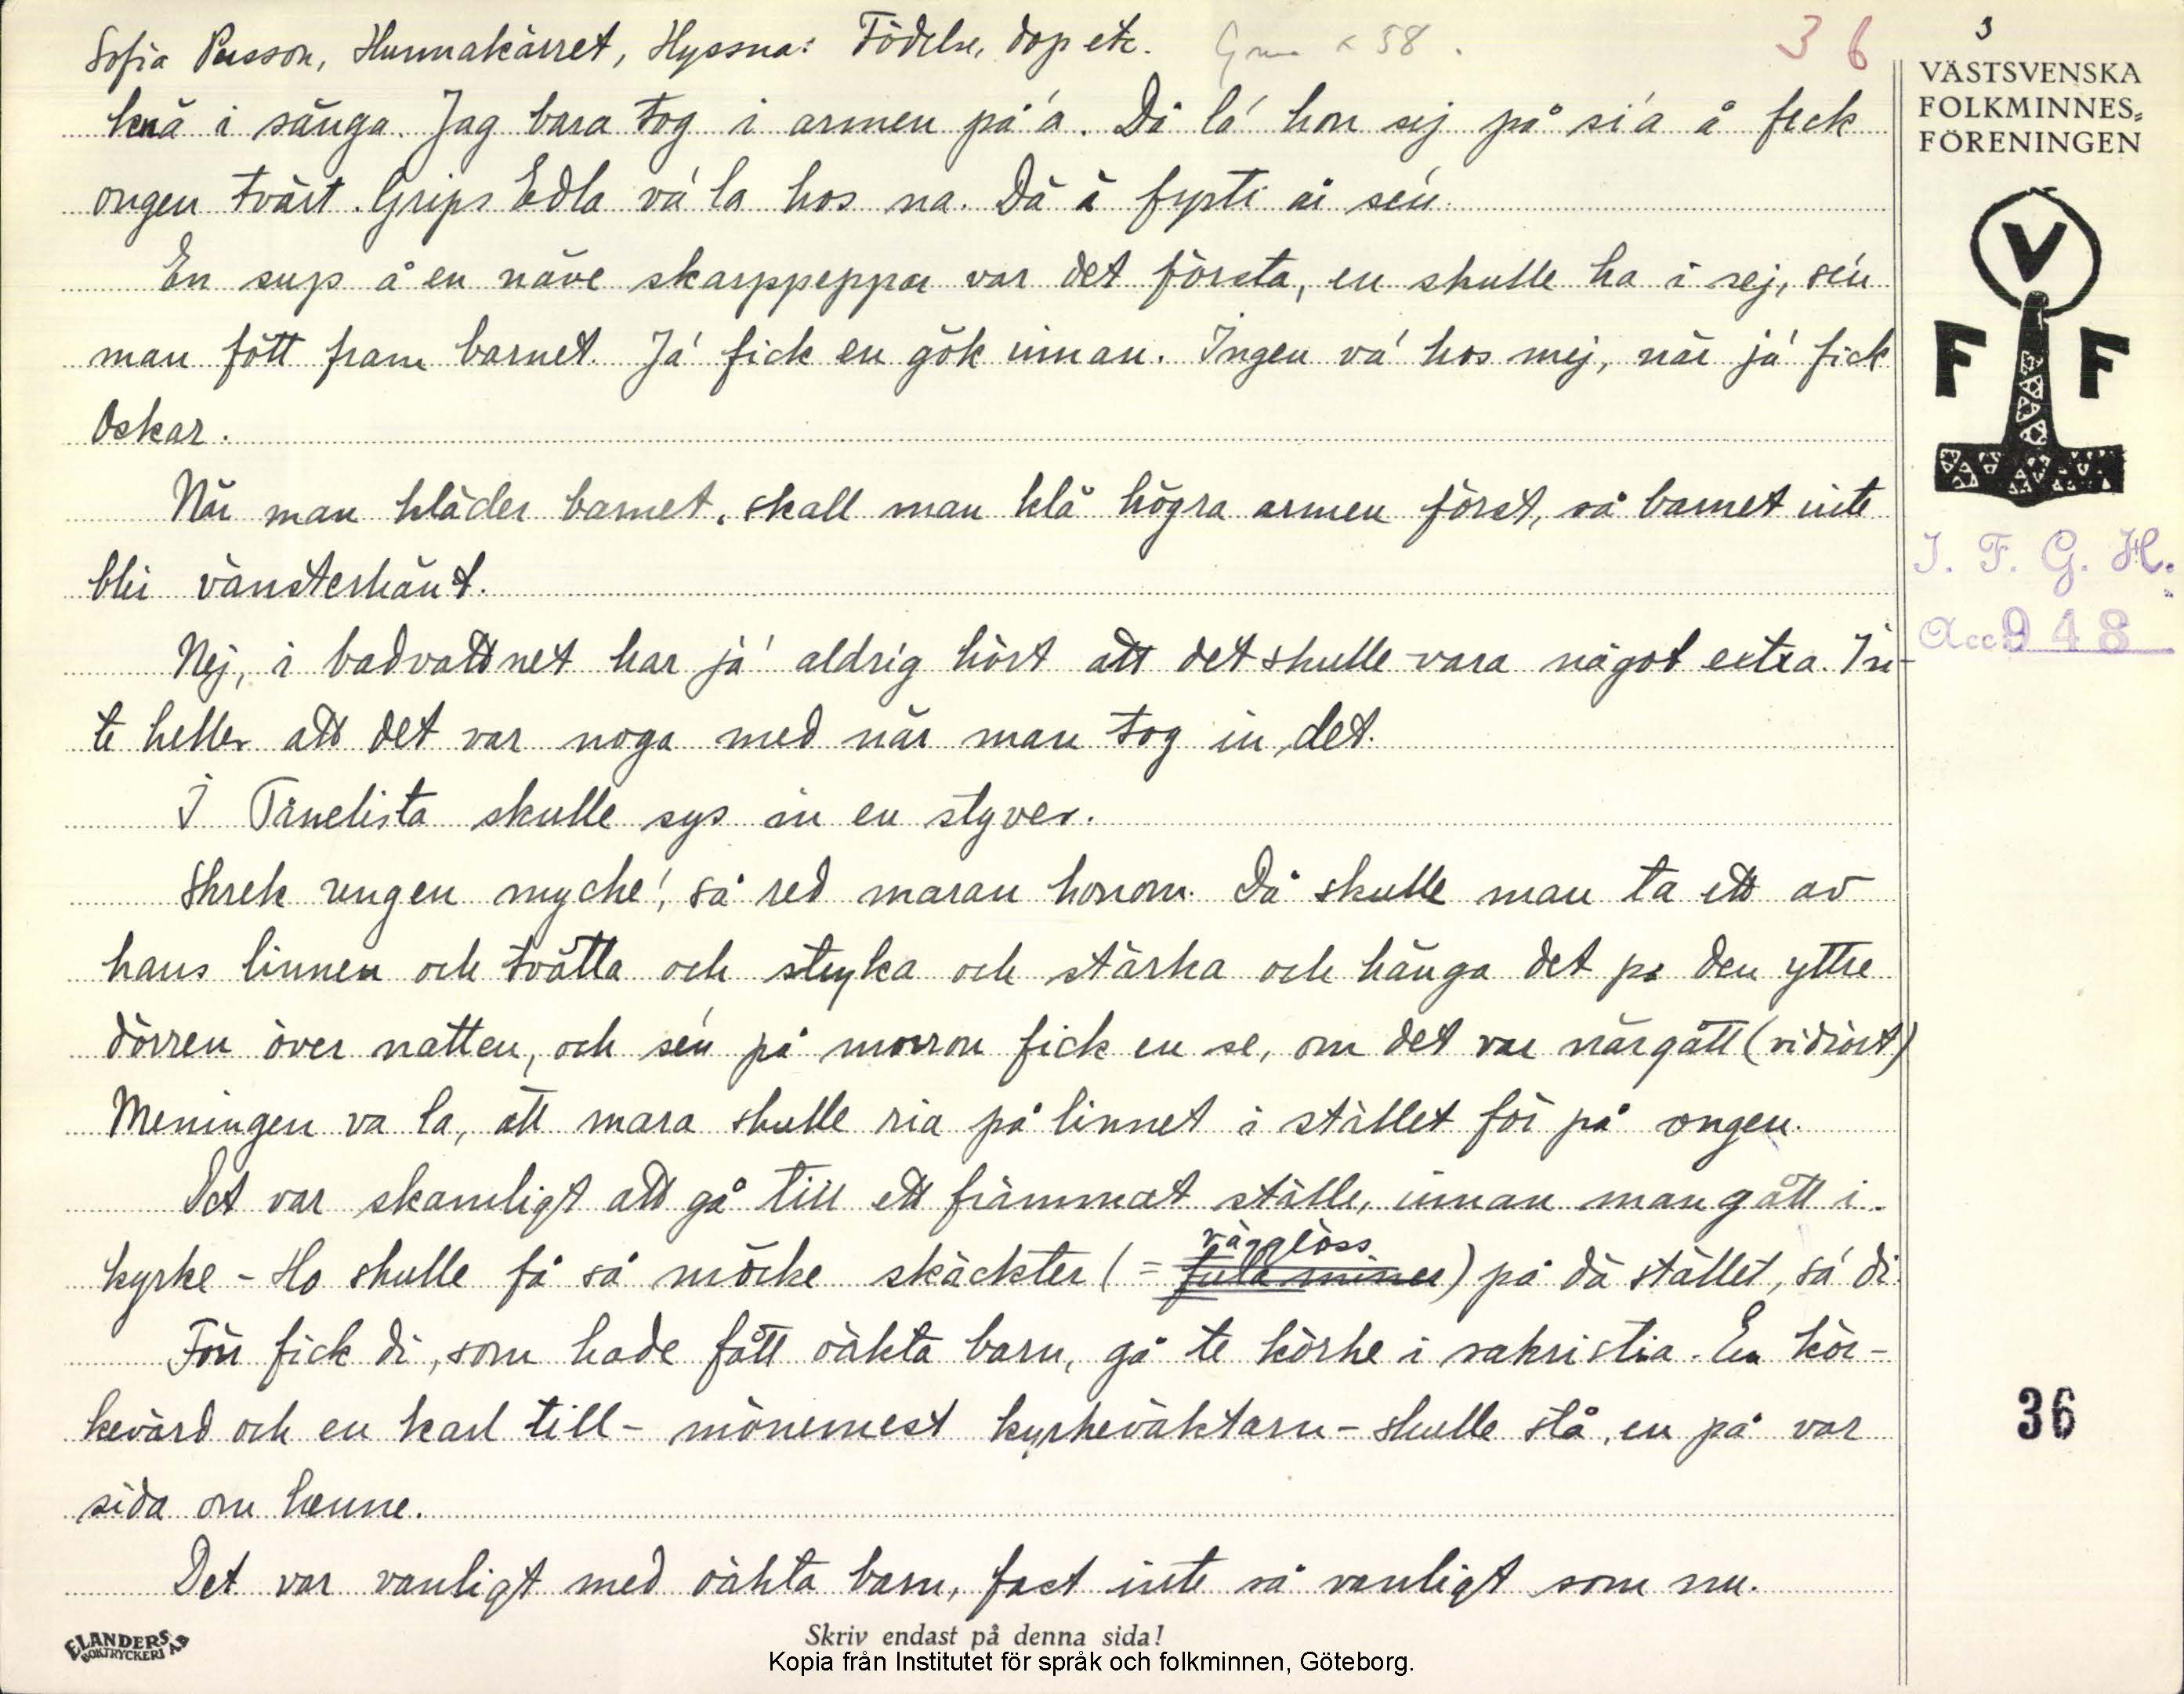 Sofia Persson, Hunnakärret, Hyssna: Födelse, dop etc. 58.
36
3
VÄSTSVENSKA
FOLKMINNES-
FÖRENINGEN
V
F F
I. F. G. H.
Acc 948
knä i sänga. Jag bara tog i armen på'a. Då la' hon sej på si'a å fick
ongen tvärt. Grips Edla va' la hos na. Dä ä fyrti år se'n.
En sup å en näve skarppeppar var det första, en skulle ha i sej, se'n
man fött fram barnet. Ja' fick en gök innan. Ingen va' hos mej, när ja' fick
Oskar.
När man kläder barnet, skall man klä högra armen först, så barnet inte
blir vänsterhänt.
Nej, i badvattnet har ja' aldrig hört att det skulle vara något extra. In-
te heller att det var noga med när man tog in det.
I Linelista skulle sys in en styver.
Skrek ungen myche', så red maran honom. Då skulle man ta ett av
hans linnen och tvätta och stryka och stärka och hänga det på den yttre
dörren över natten, och se'n på morron fick en se, om det var närgått (vidrört)
Meningen va la, att mara skulle ria på linnet i stället för på ongen.
Det var skamligt att gå till ett främmat ställe, innan man gått i
kyrke - Ho skulle få så möcke skäckter (= fula miner vägglöss) på dä stället, sa' di.
Förr fick di, som hade fått oäkta barn, gå te körke i sakristia. En kör-
kevärd och en karl till - mönemest kyrkeväktarn - skulle stå, en på var
sida om henne.
Det var vanligt med oäkta barn, fast inte så vanligt som nu.
36
ELANDERS BOKTRYCKERI AB
Skriv endast på denna sida!
Kopia från Institutet för språk och folkminnen, Göteborg.